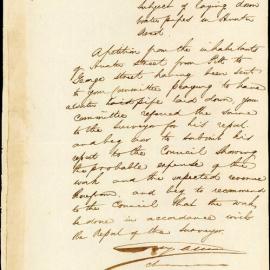 subject of laying down
water pipes in Hunter
Street.
A petition from the inhabitants
of Hunter Street from Pitt to
George Street having been sent
to your Committee praying to have
a water laid pipe laid down, your
Committee referred the same
to the Surveyor for his report
and beg now to submit his
report to the Council showing
the probable expense of the
work and the expected revenue
therefrom and beg to recommend
to the Council that the work
be done in accordance with
the Report of the Surveyor.
Chairman